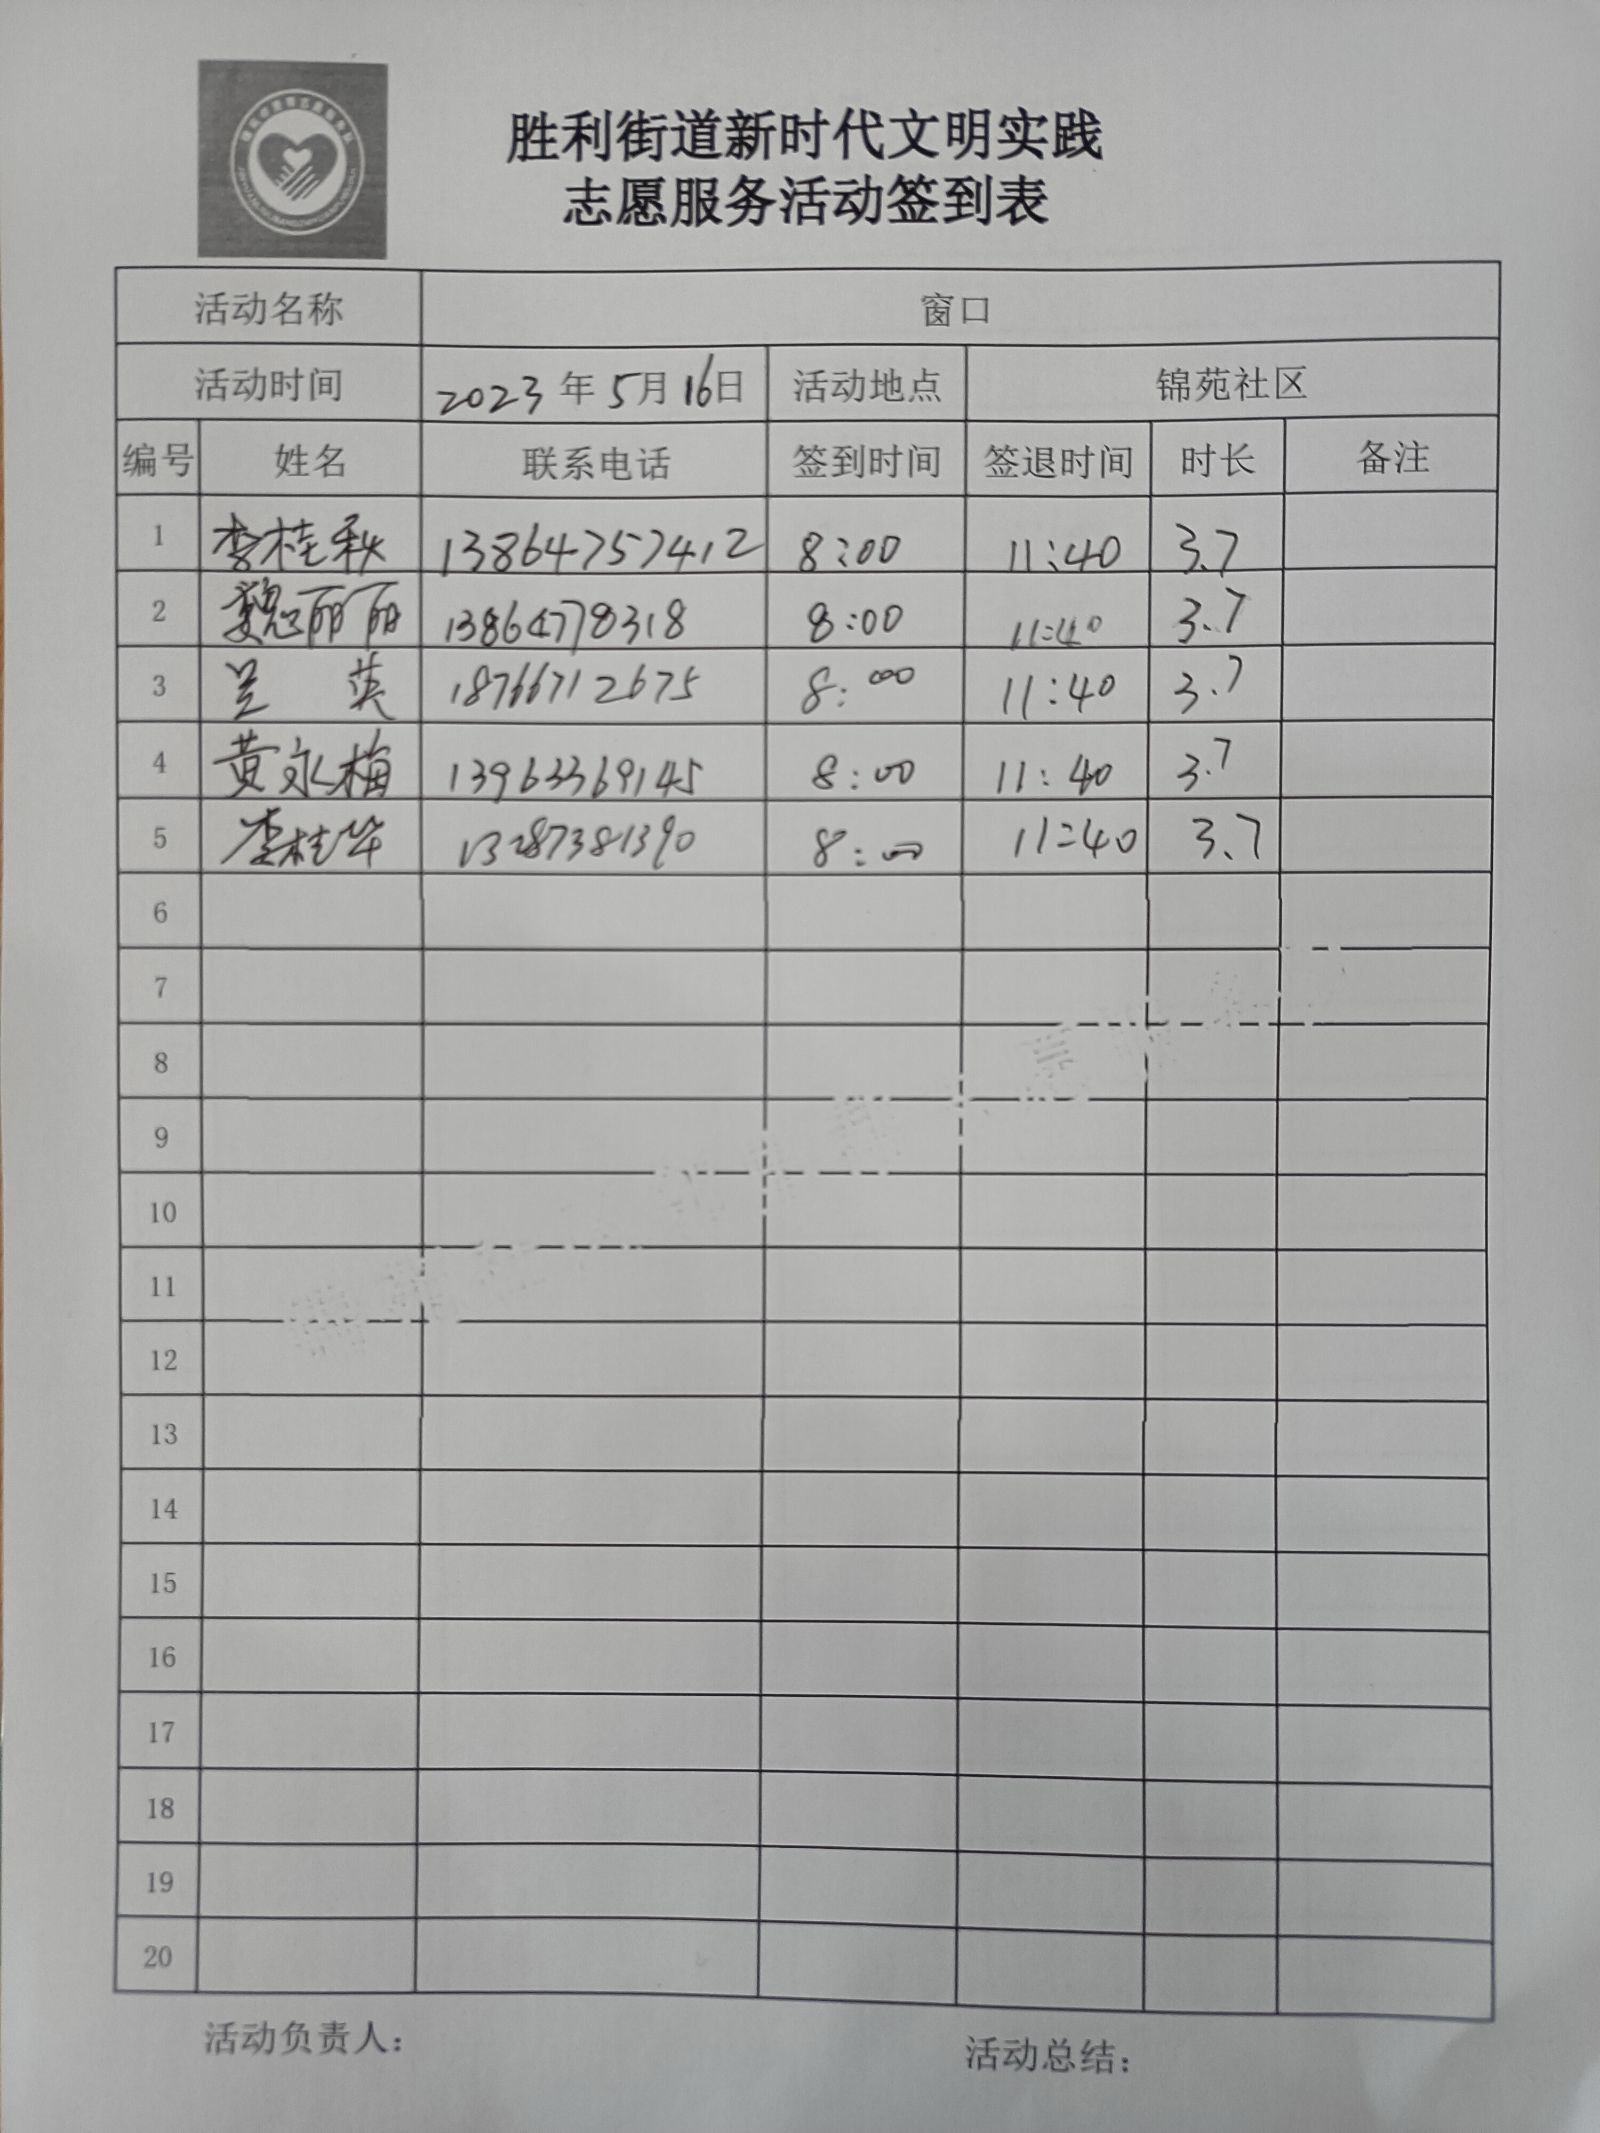 胜利街道新时代文明实践
志愿服务活动签到表
活动名称 窗口
活动时间 2023年5月16日 活动地点 锦苑社区
编号 姓名 联系电话 签到时间 签退时间 时长 备注
1 李桂秋 13864757412 8:00 11:40 3.7
2 魏丽丽 13864778318 8:00 11:40 3.7
3 兰 英 18766712675 8:00 11:40 3.7
4 黄永梅 13963369145 8:00 11:40 3.7
5 李桂华 13287381390 8:00 11:40 3.7
6
7
8
9
10
11
12
13
14
15
16
17
18
19
20
活动负责人： 活动总结：